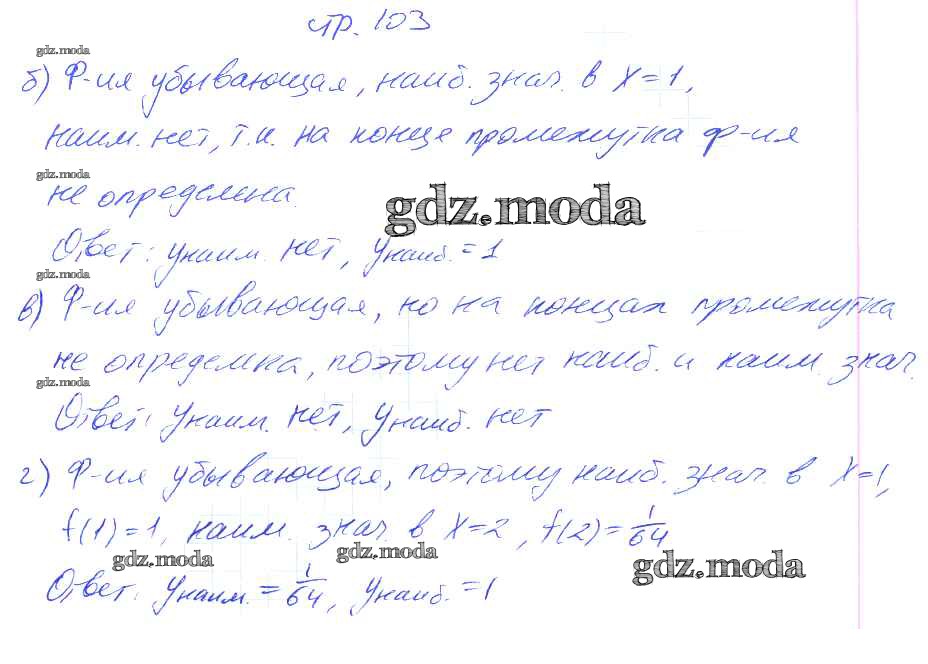 стр. 103
gdz.moda
б) Ф-ия убывающая, наиб. знач. в x=1,
наим. нет, т.к. на конце промежутка ф-ия
gdz.moda
не определена.
gdz.moda
Ответ: yнаим. нет, yнаиб. = 1
gdz.moda
в) Ф-ия убывающая, но на концах промежутка
не определена, поэтому нет наиб. и наим. знач.
gdz.moda
Ответ: yнаим. нет, yнаиб. нет
г) Ф-ия убывающая, поэтому наиб. знач. в x=1,
f(1)=1, наим. знач в x=2, f(2)=1/64
gdz.moda gdz.moda gdz.moda
Ответ: yнаим. = 1/64, yнаиб. =1